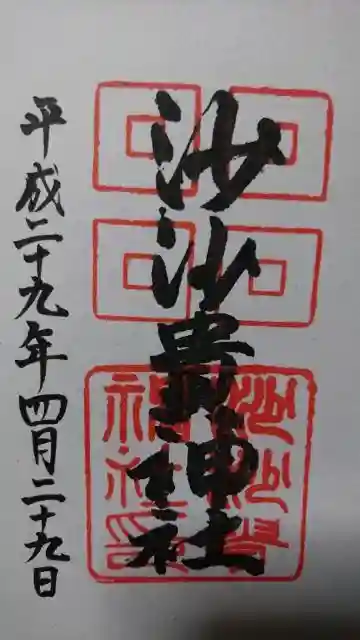 沙沙貴神社
平成二十九年四月二十九日
沙沙貴
神社印